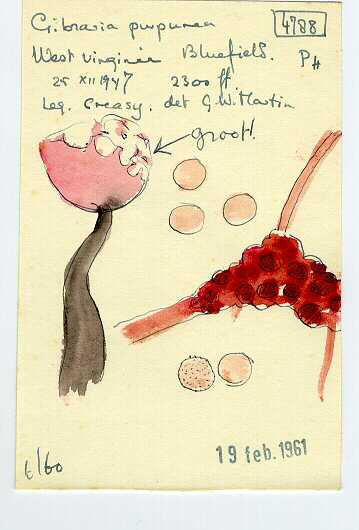 Cribraria purpurea
4788
West Virginia Bluefield. PH
25 XII 1947 2300 ft.
Leg. Creasy. det G.W. Martin
groot!
t/60
19 feb. 1961